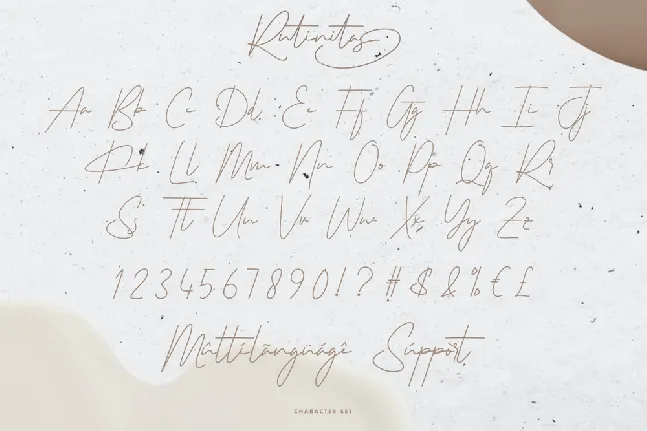 Rutinitas
Aa Bb Cc Dd Ee Ff Gg Hh Ii Jj
Kk Ll Mm Nn Oo Pp Qq Rr
Ss Tt Uu Vv Ww Xx Yy Zz
1234567890!?#$&%€£
Mûltilãngüágê Súppörț
CHARACTER SET